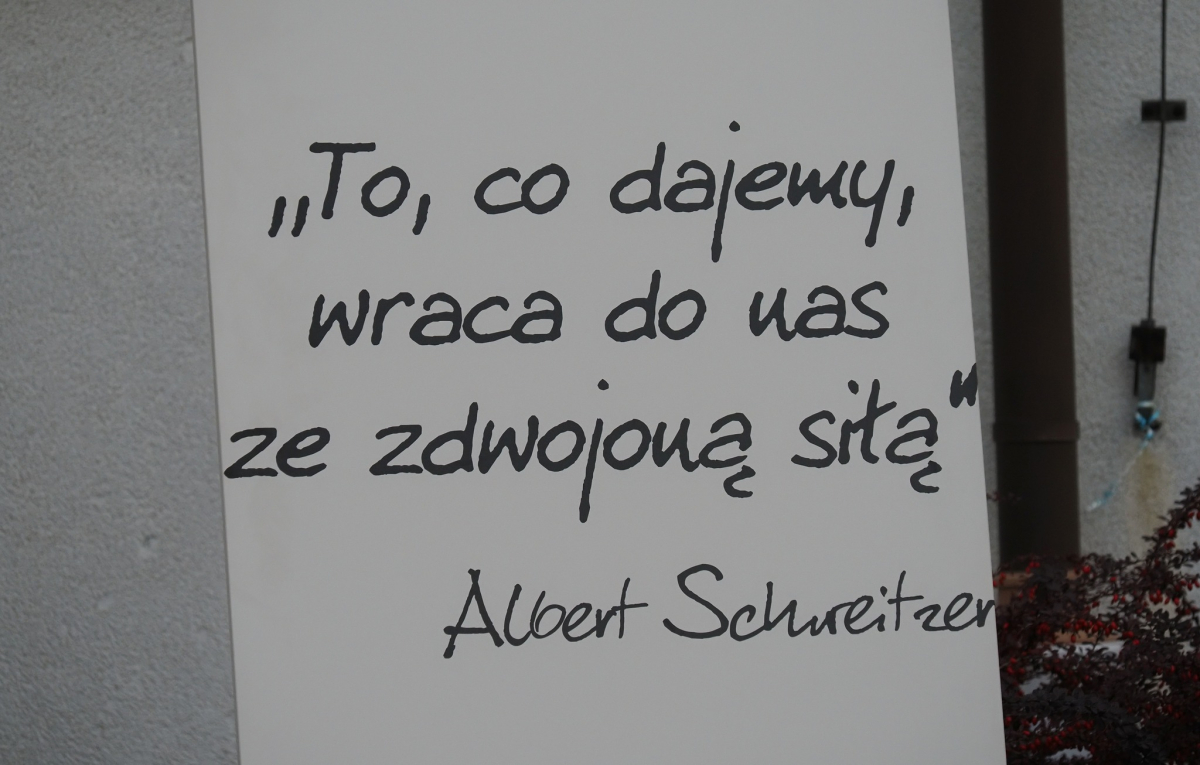 „To, co dajemy,
wraca do nas
ze zdwojoną siłą"
Albert Schweitzer